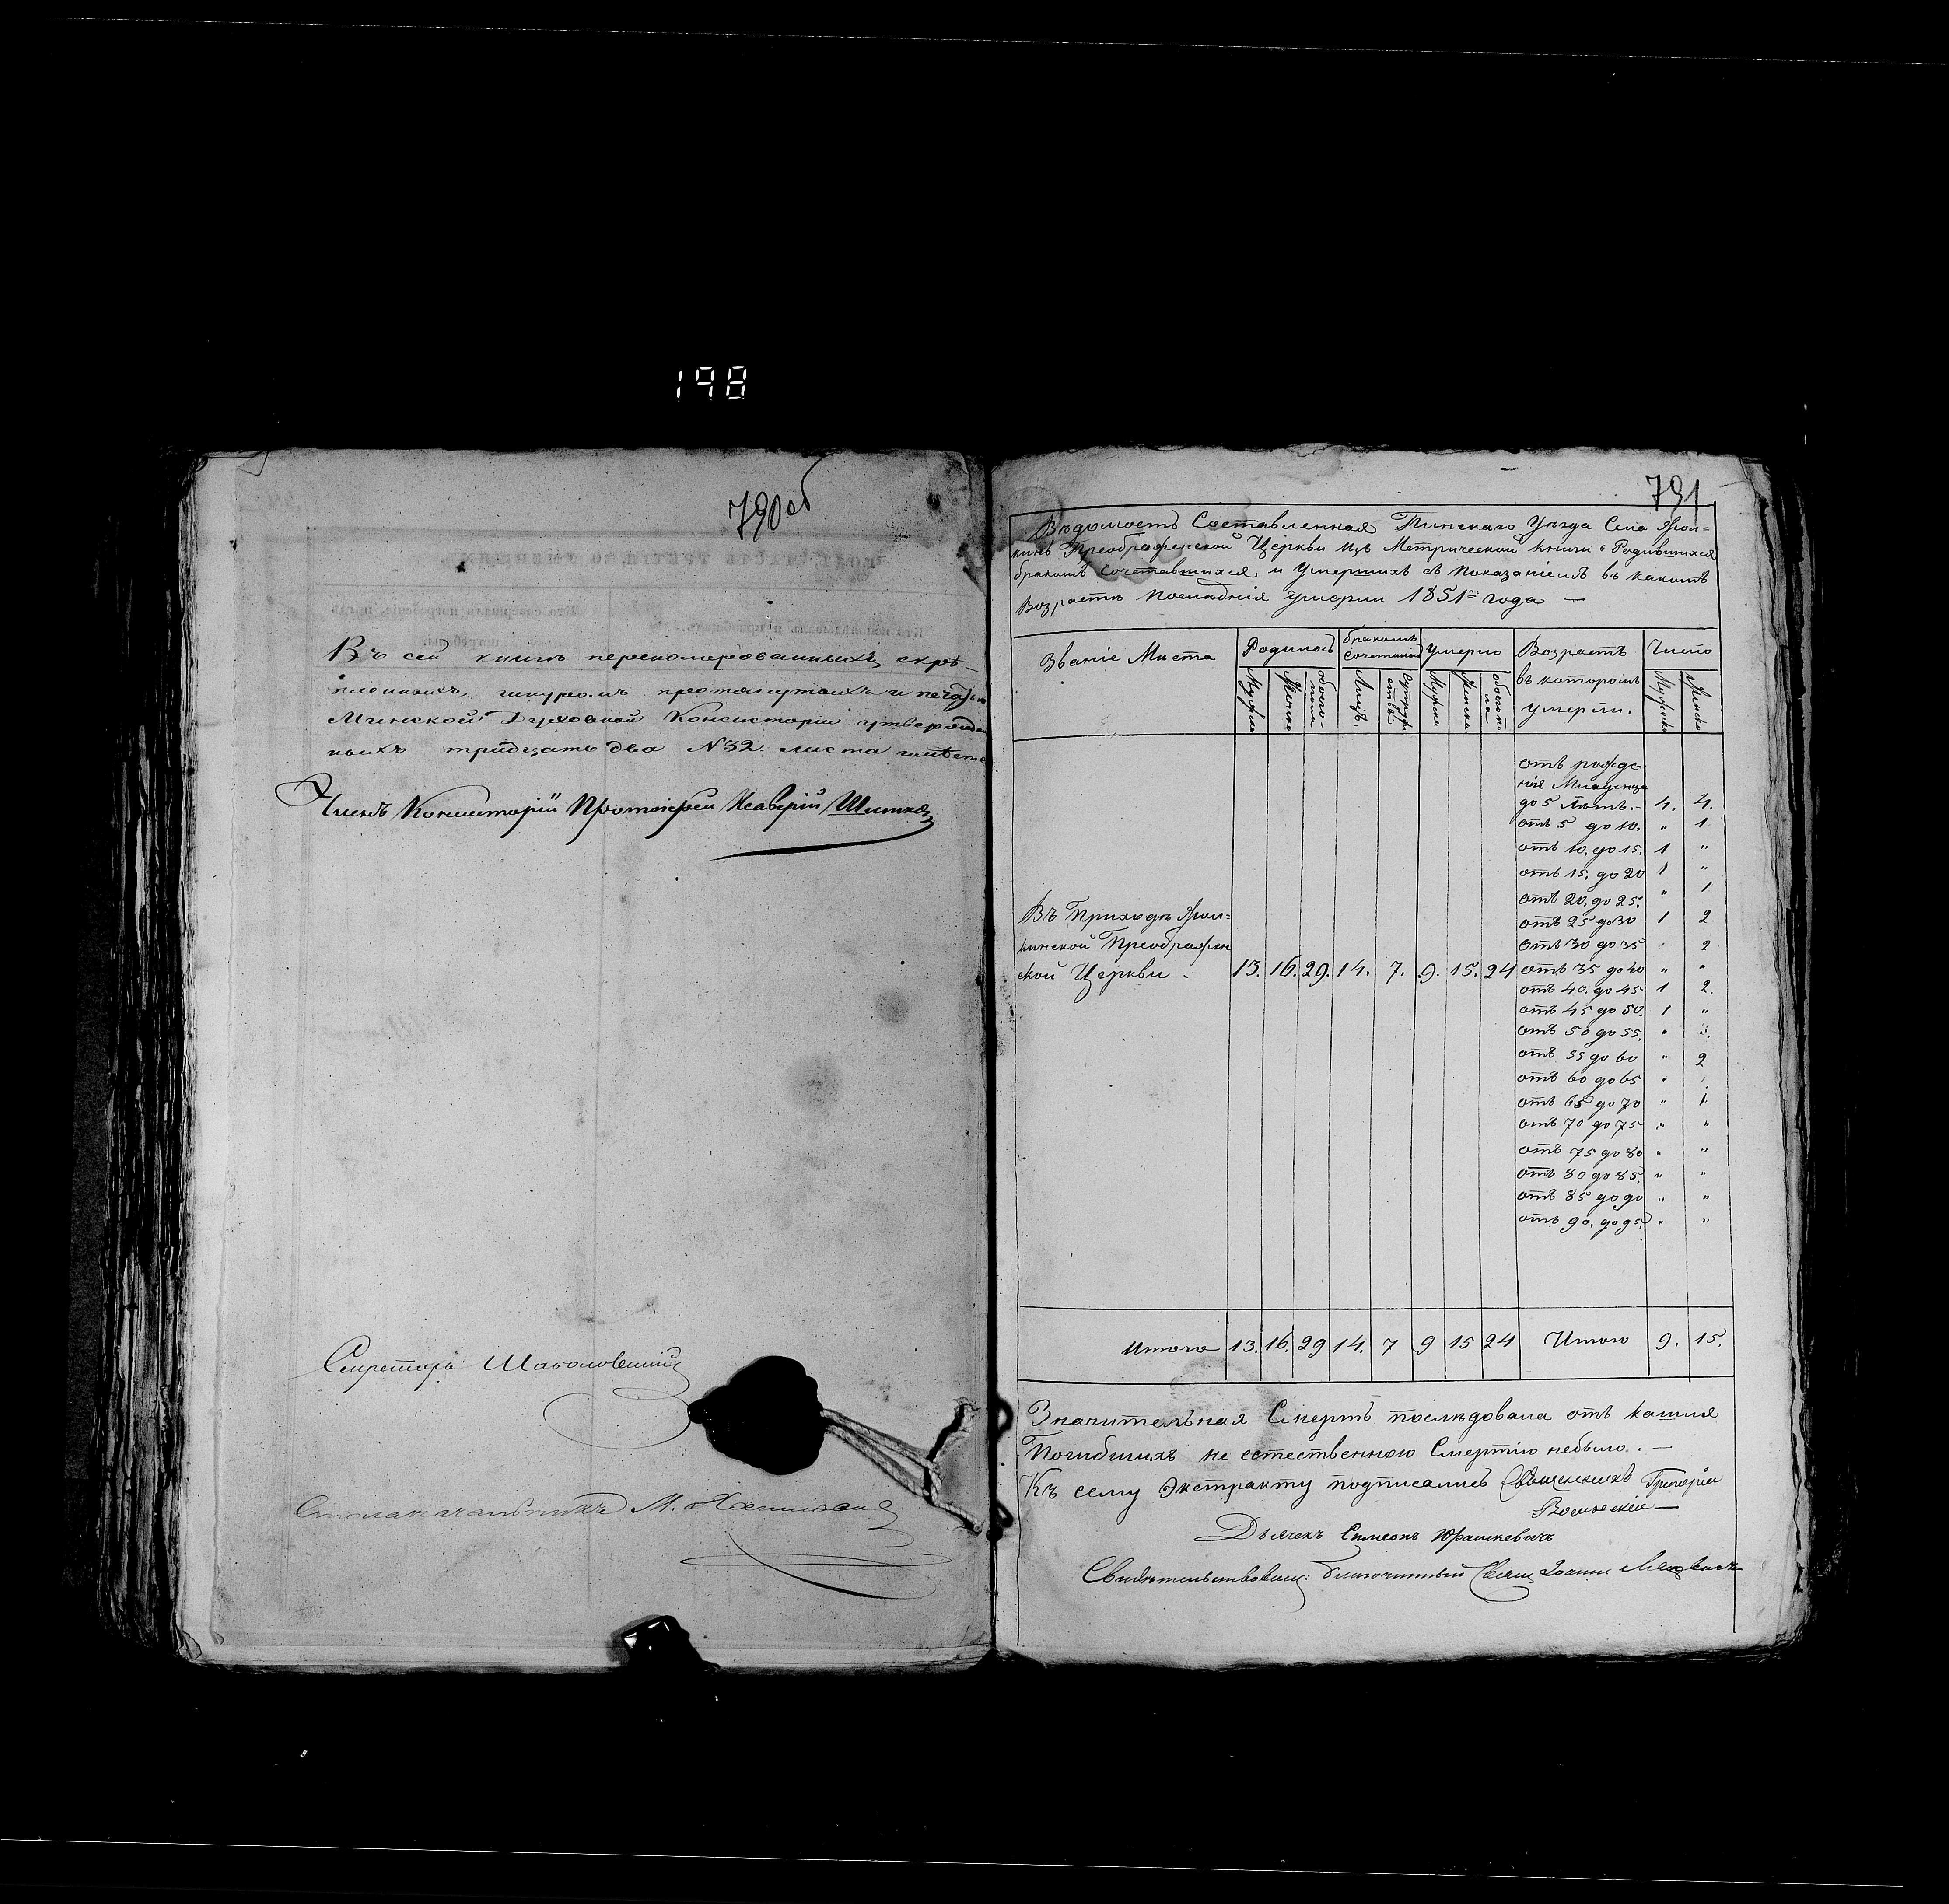 198
790об
Въ сей книгѣ перенумерованныхъ, скрѣ-
пленныхъ, шнуромъ протянутыхъ и печатью
Минской Духовной Консисторіи утвержден
ныхъ тридцать два №32. листа имѣетс
Членъ Консисторіи Протоіерей
Секретарь
Столоначальникъ М.
791
Вѣдомость Составленная Пинскаго Уѣзда Села
Преображенской Церкви изъ Метрической книги о Родившихся
бракомъ сочетавшихся и Умершихъ съ показаніемъ въ какомъ
Возрастѣ послѣднія умерли 1851го года —
Званіе Мѣста Родилось бракомъ сочеталось Умерло Возрастъ въ которомъ умерли. Число
Мужеска Женска обоего пола Лицъ. Супружествъ Мужска Женска обоего пола Мужска Женска
отъ рожде-
нія Младенца
до 5 Лѣтъ. - 4. 4.
отъ 5 до 10. " 1
отъ 10. до 15. 1 "
отъ 15. до 20 1 "
отъ 20. до 25. " 1
отъ 25 до 30 1 2
отъ 30 до 35 " 2
Въ Приходѣ
кинской Преображен
ской Церкви - 13. 16. 29. 14. 7. 9. 15. 24 отъ 35 до 40 " "
отъ 40. до 45 1 2.
отъ 45 до 50. 1 "
отъ 50 до 55.
отъ 55 до 60 " 2
отъ 60 до 65
отъ 65 до 70 " 1.
отъ 70 до 75 " "
отъ 75 до 80 " "
отъ 80 до 85. " "
отъ 85 до 90 " "
отъ 90. до 95. " "
Итого 13. 16. 29 14. 7 9 15 24 Итого 9. 15.
Значительная Смерть послѣдовала отъ кашля
Погибшихъ не естественною Смертію небыло. —
Къ сему Экстракту подписались Священникъ Григорій
Дьячекъ Симеонъ Юрашкевичъ
Свидѣтельствовалъ: благочинный Свящ Іоаннъ